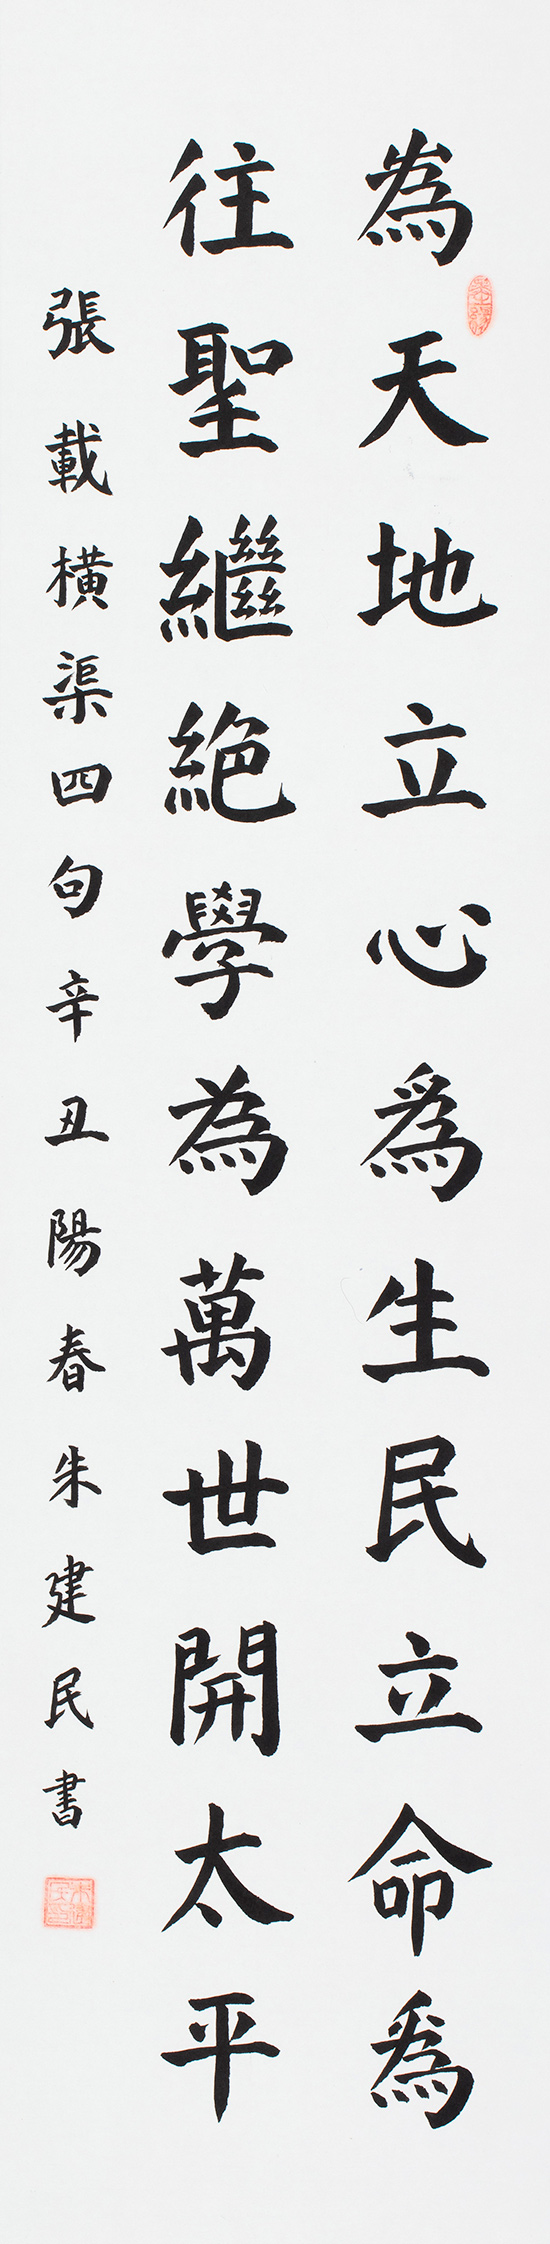 為天地立心爲生民立命爲
往聖繼絕學為萬世開太平
張載橫渠四句辛丑陽春朱建民書